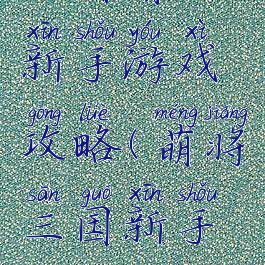 xīn shǒu yóu xì
新手游戏
gōng lüè méng jiàng
攻略(萌将
sān guó xīn shǒu
三国新手